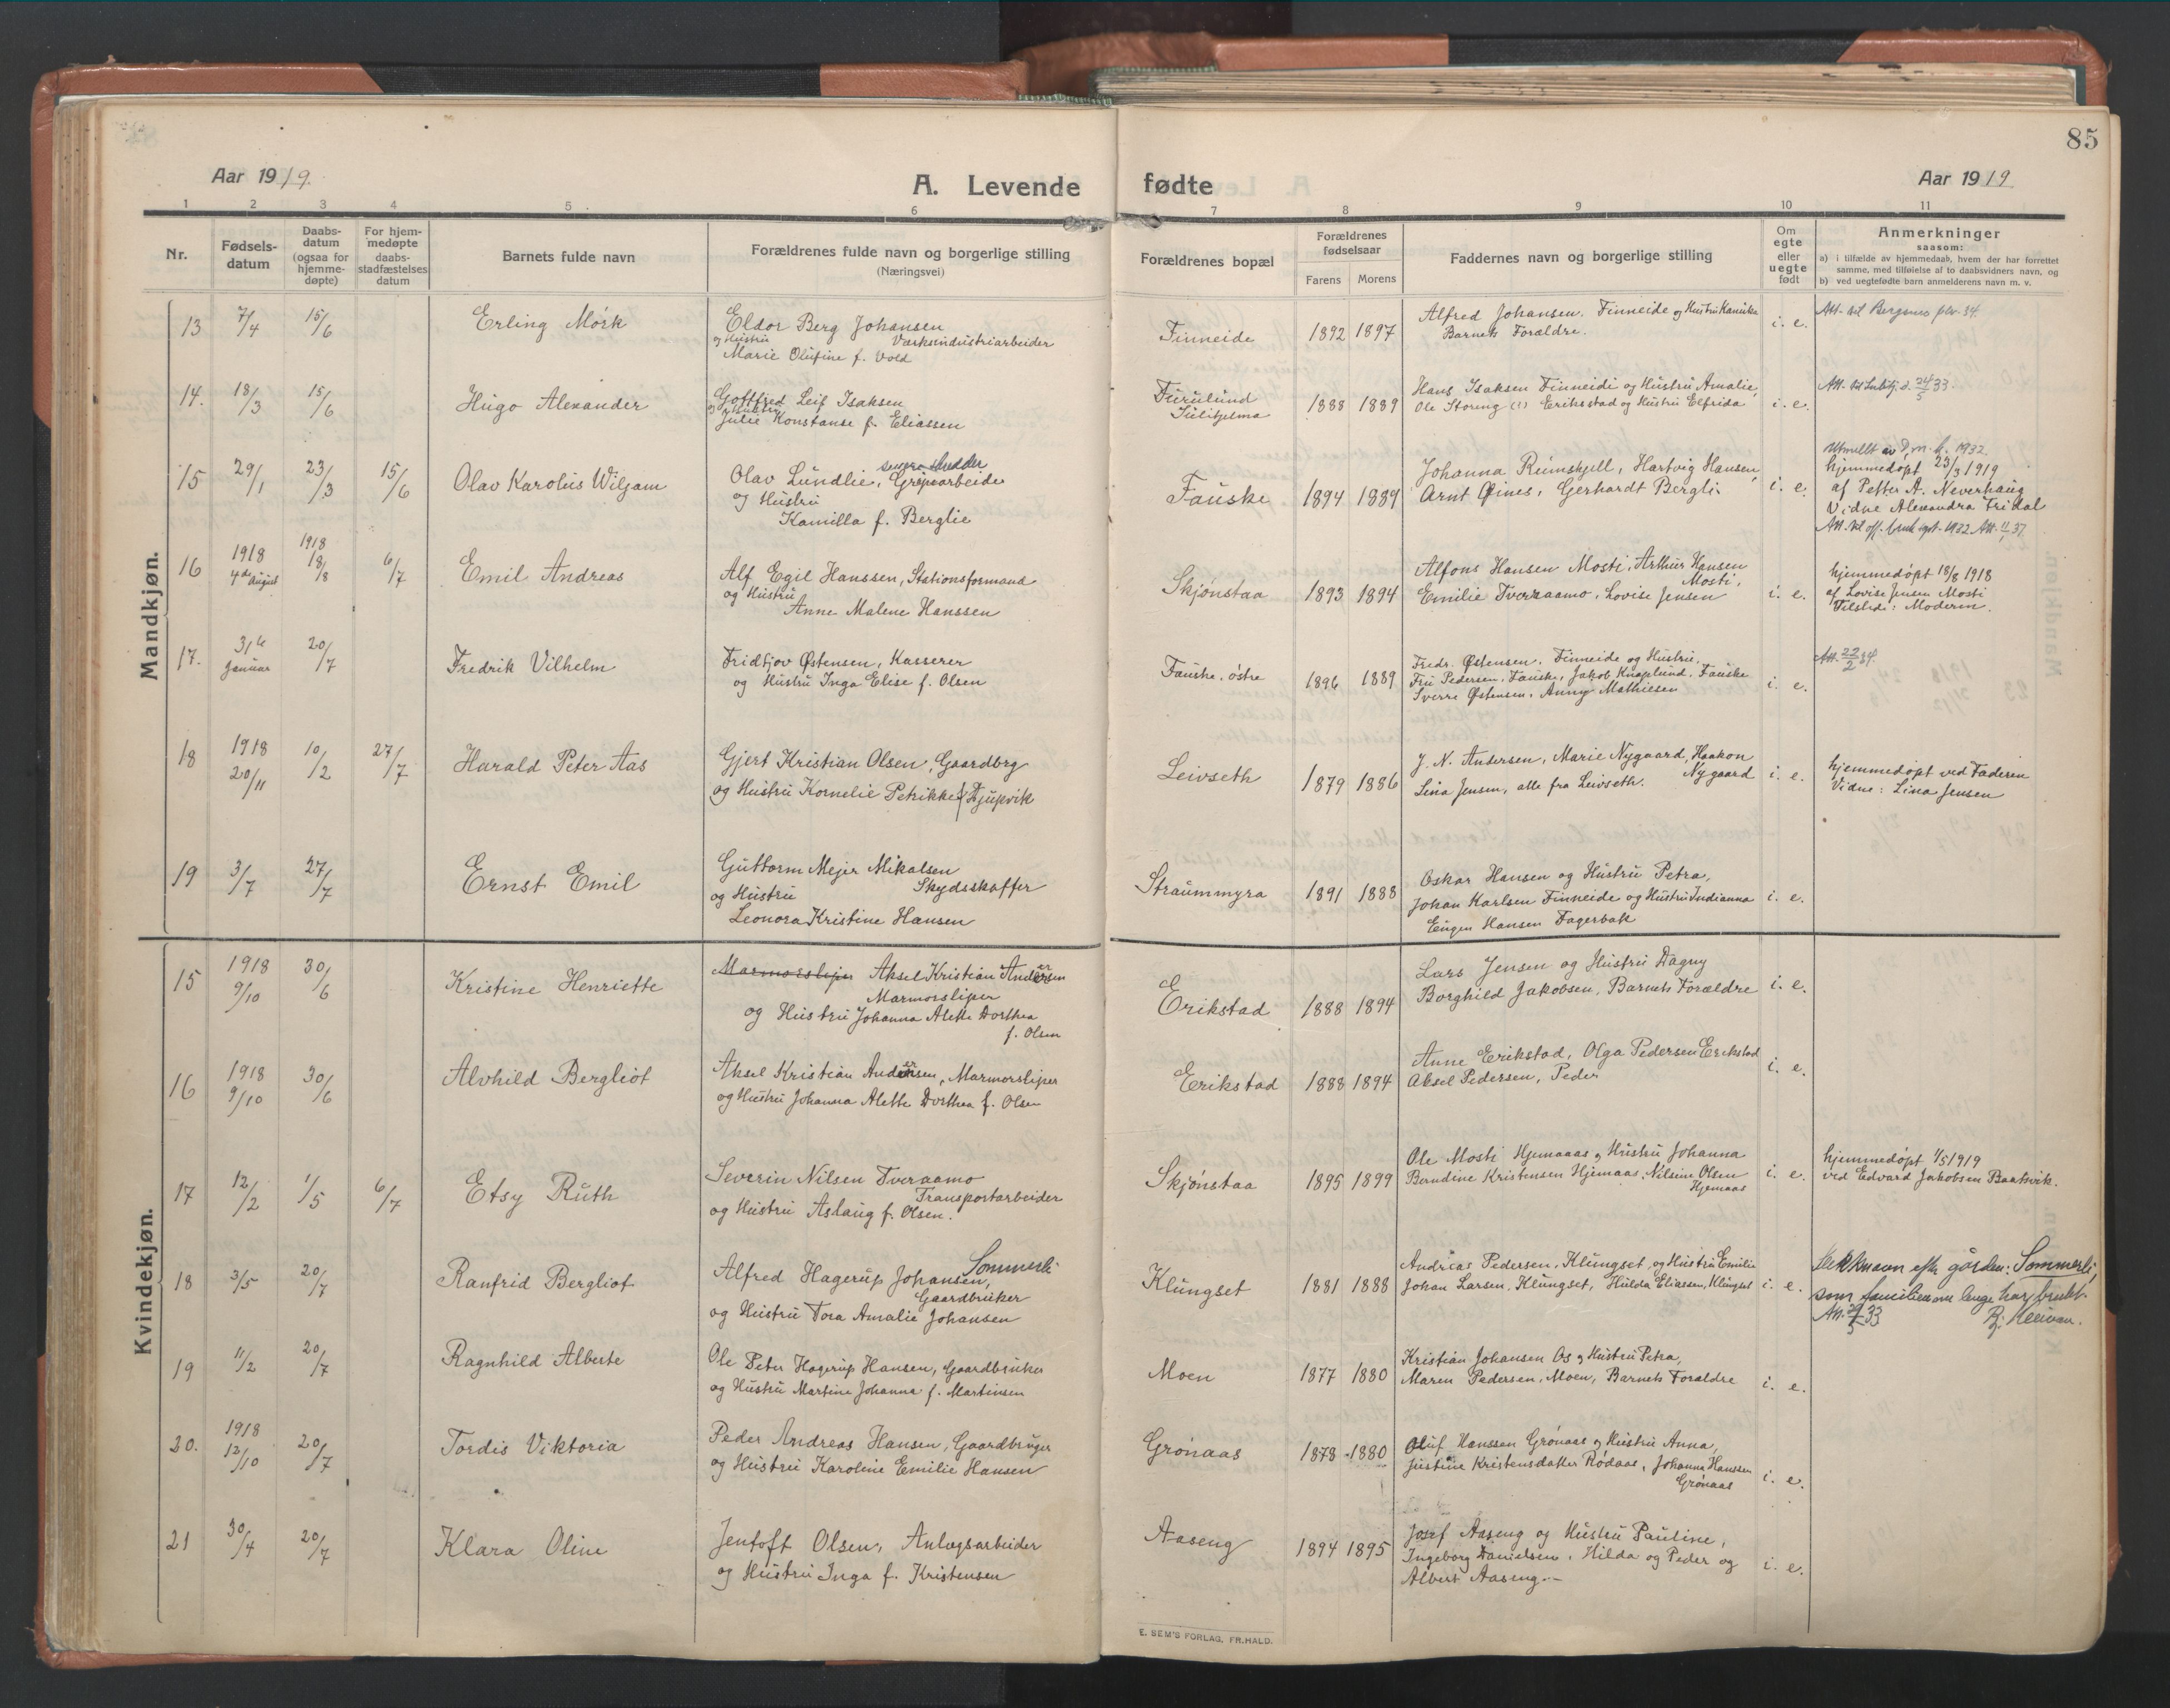 85
Aar 1919.
A. Levende fødte
Aar 1919
1 2 3 4 5 6 7 8 9 10 11
Nr.
Fødsels-
datum
Daabs-
datum
(ogsaa for
hjemme-
døpte)
For hjem-
medøpte
daabs-
stadfæstelses
datum
Barnets fulde navn
Forældrenes fulde navn og borgerlige stilling
(Næringsvei)
Forældrenes bopæl
Forældrenes
fødselsaar
Farens Morens
Faddernes navn og borgerlige stilling
Om
egte
eller
uegte
født
Anmerkninger
saasom:
a) i tilfælde av hjemmedaab, hvem der har forrettet
samme, med tilføielse af to daabsvidners navn, og
b) ved uegtefødte barn anmelderens navn m. v.
Mandkjøn.
13 7/4 15/6 Erling Mörk
Eldor Berg Johansen
og Hustru Værksindustriarbeider
Marie Olufine f. Vold
Finneide 1892 1897
Alfred Johansen. Finneide og Hustru
Barnets Forældre.
i. e.
Att. til
14. 18/3 15/6 Hugo Alexander
Gottfred Leif Isaksen
og Hustru
Julie Konstanse f. Eliassen
Furulund
Sulitjelma
1888 1889
Hans Isaksen Finneide og Hustru Amalie,
Ole Storeng (?) Eriksstad og Hustru Elfrida
i. e.
Att. til 24/5 33.
15 29/1 23/3 15/6 Olav Karolus Wiljam
Olav Lundlie, Grubearbeider
og Hustru
Kamilla f. Berglie
Fauske 1894 1889
Johanna Reimskjell, Hartvig Hansen,
Arnt Øines, Gerhardt Bergli.
i. e.
Utmeldt av 1932.
hjemmedöpt 23/3 1919
af Petter A. Neverhaug
Vidne Alexandra Fridal
Att. til 1932 Att. 37
16 1918 4de August 1918 18/8 6/7 Emil Andreas
Alf Egil Hanssen, Stationsformand
og Hustru
Anne Malene Hanssen
Skjönstaa 1893 1894
Alfons Hansen Mosti, Arthur Hansen
Mosti,
Emilie Tveraamo, Lovise Jensen
i. e.
hjemmedöpt 18/8 1918
af Lovise Jensen Mosti
Tilstede: Moderen.
17. 31te Januar 20/7 Fredrik Vilhelm
Fridtjov Østensen, Kasserer
og Hustru Inga Elise f. Olsen
Fauske, östre 1896 1889
Fredr. Østensen. Finneide og Hustru,
Fru Pedersen, Fauske, Jakob Knaplund. Fauske
Sverre Østensen, Anny Mathiesen
i. e.
Att. 22/2 34.
18 1918 20/11 10/2 27/7 Harald Peter Aas
Gjert Kristian Olsen, Gaardbrg
og Hustru Kornelie Petrikke f. Djupvik
Leivseth 1879 1886
J. N. Andersen, Marie Nygaard, Haakon
Nygaard
Lina Jensen, alle fra Leivseth.
i. e.
hjemmedöpt ved Faderen
Vidne: Lina Jensen
19 3/7 27/7 Ernst Emil
Guttorm Mejer Mikalsen
og Hustru Skydsskaffer
Leonora Kristine Hansen
Straummyra 1891 1888
Oskar Hansen og Hustru Petra,
Johan Karlsen Finneide og Hustru Indianna
Eugen Hansen Fagerbak
i. e.
Kvindekjøn.
15 1918 9/10 30/6 Kristine Henriette
Marmorsliper Aksel Kristian Andersen
Marmorsliper
og Hustru Johanna Alette Dorthea
f. Olsen
Erikstad 1888 1894
Lars Jensen og Hustru Dagny
Borghild Jakobsen, Barnets Forældre
i. e.
16 1918 9/10 30/6 Alvhild Bergliot
Aksel Kristian Andersen, Marmorsliper
og Hustru Johanna Alette Dorthea f. Olsen
Erikstad 1888 1894
Anne Erikstad, Olga Pedersen Erikstad
Aksel Pedersen, Peder
i. e.
17 12/2 1/5 6/7 Etsy Ruth
Severin Nilsen Tveraamo
Transportarbeider
og Hustru Aslaug f. Olsen.
Skjönstaa 1895 1899
Ole Mosti Hjemaaas og Hustru Johanna
Berndine Kristensen Hjemaas, Nilsine Olsen
Hjemaas
i. e.
hjemmedöpt 1/5 1919
ved Edvard Jakobsen Baatsvik.
18 3/5 20/7 Ranfrid Bergliot
Alfred Hagerup Johansen, Sommerli
Gaardbruker
og Hustru Tora Amalie Johansen
Klungset 1881 1888
Andreas Pedersen, Klungset, og Hustru Emilie
Johan Larsen, Klungset, Hulda Eliassen, Klungset
i. e.
Slektnavn efter gården: Sommerli,
som familien har brukt.
Att. 33
19 11/2 20/7 Ragnhild Alberte
Ole Peter Hagerup Hansen, Gaardbruker
og Hustru Martine Johanna f. Martinsen
Moen 1877 1880
Kristian Johansen Os og Hustru Petra,
Maren Pedersen, Moen, Barnets Forældre
i. e.
20. 1918 12/10 20/7 Tordis Viktoria
Peder Andreas Hansen, Gaardbruger
og Hustru Karoline Emilie Hansen
Grönaas 1878 1880
Oluf Hanssen Grönaas og Hustru Anna,
Justine Kristensdatter Rödaas, Johanna Hanssen
Grönaas
i. e.
21 30/4 20/7 Klara Oline
Jentoft Olsen, Anlægsarbeider
og Hustru Inga f. Kristensen
Aaseng 1894 1895
Josef Aaseng og Hustru Pauline,
Ingeborg Danielsen, Hilda og Peder og
Albert Aaseng.
i. e.
E. SEM'S FORLAG, FR.HALD.